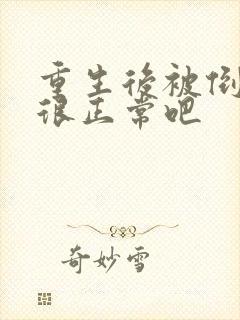 重生後被倒
很正常吧
奇妙雪